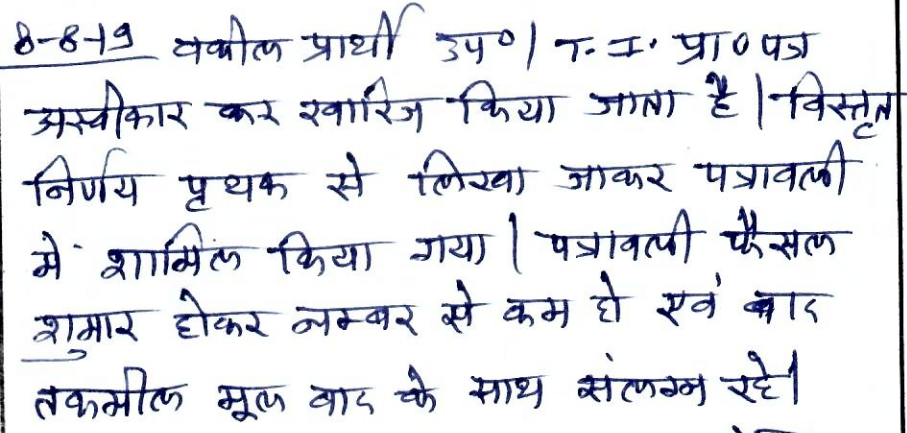 8-8-19 वकील प्रार्थी उप०। T.I. प्रा० पत्र
अस्वीकार कर खारिज किया जाता है। विस्तृत
निर्णय पृथक से लिखा जाकर पत्रावली
में शामिल किया गया। पत्रावली फैसल
शुमार होकर नम्बर से कम हो एवं बाद
तकमील मूल वाद के साथ संलग्न रहे।